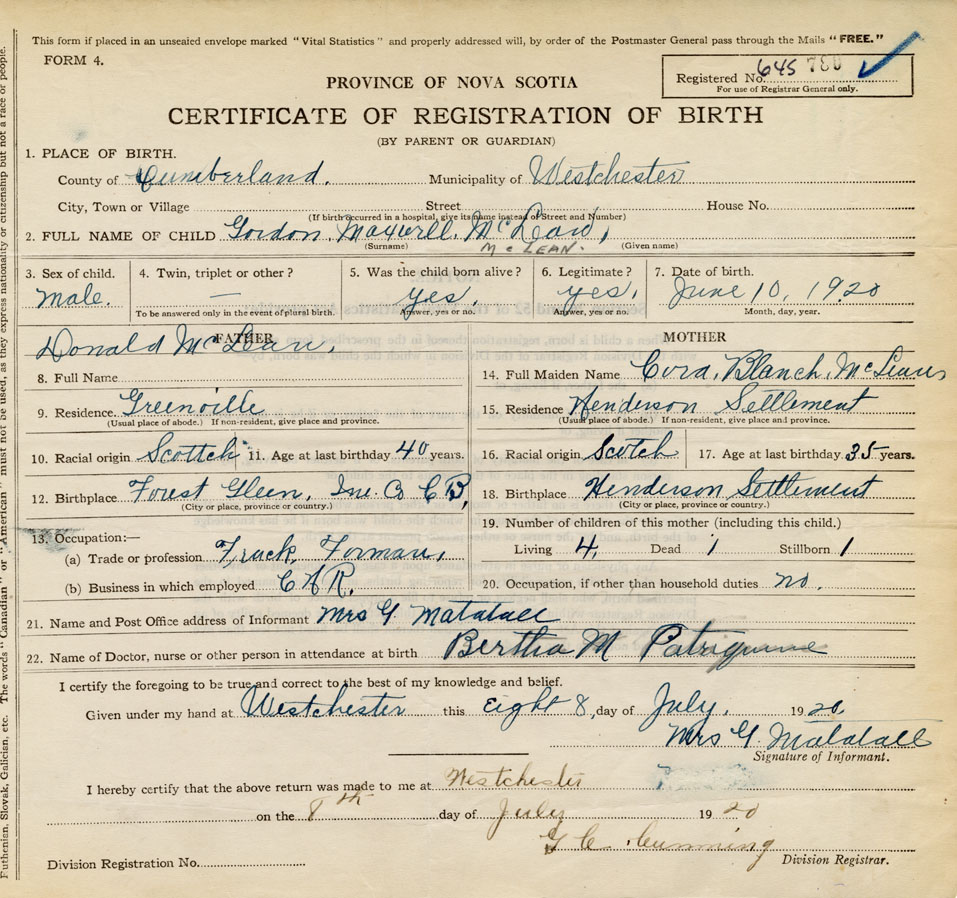 This form if placed in an unsealed envelope marked "Vital Statistics" and properly addressed will, by order of the Postmaster General pass through the Mails "FREE."
FORM 4.
Registered No. 645
For use of Registrar General only.
PROVINCE OF NOVA SCOTIA
CERTIFICATE OF REGISTRATION OF BIRTH
(BY PARENT OR GUARDIAN)
1. PLACE OF BIRTH.
County of Cumberland. Municipality of Westchester
City, Town or Village Street House No.
(If birth occurred in a hospital, give its name instead of Street and Number)
2. FULL NAME OF CHILD Gordon Maxwell McLean,
(Surname) McLEAN. (Given name)
3. Sex of child. 4. Twin, triplet or other? 5. Was the child born alive? 6. Legitimate? 7. Date of birth.
male. — yes, yes, June 10, 1920
To be answered only in the event of plural birth. Answer, yes or no. Answer, yes or no. Month, day, year.
FATHER
Donald McLean,
8. Full Name
9. Residence. Greenville
(Usual place of abode.) If non-resident, give place and province.
10. Racial origin Scottch 11. Age at last birthday 40 years.
12. Birthplace Forest Gleen, Ine. Co C B,
(City or place, province or country.)
13. Occupation:—
(a) Trade or profession Track Forman,
(b) Business in which employed
MOTHER
14. Full Maiden Name Cora, Blanch, McLean
15. Residence Henderson Settlement
(Usual place of abode.) If non-resident, give place and province.
16. Racial origin Scotch 17. Age at last birthday 35 years.
18. Birthplace Henderson Settlement
(City or place, province or country.)
19. Number of children of this mother (including this child.)
Living 4, Dead 1 Stillborn 1
20. Occupation, if other than household duties no.
21. Name and Post Office address of Informant Mrs G. Matatall
22. Name of Doctor, nurse or other person in attendance at birth Bertha M Patriquine
I certify the foregoing to be true and correct to the best of my knowledge and belief.
Given under my hand at Westchester this eight 8, day of July, 1920,
Mrs G. Matatall
Signature of Informant.
I hereby certify that the above return was made to me at Westchester
on the 8th day of July 1920
G C Cumming
Division Registration No. Division Registrar.
Ruthenian, Slovak, Galician, etc. The words "Canadian" or "American" must not be used, as they express nationality or citizenship but not a race or people.